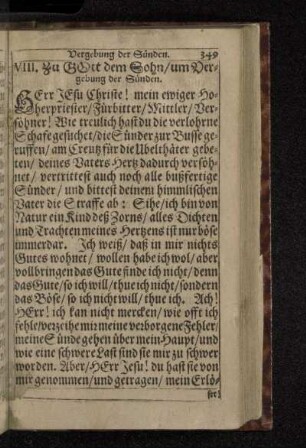 Vergebung der Sünden. 349
VIII. Zu GOtt dem Sohn/um Ver-
gebung der Sünden.
HErr JEsu Christe! mein ewiger Ho-
herpriester/Fürbitter/Mittler/Ver-
söhner! Wie treulich hast du die verlohrne
Schafe gesuchet/die Sünder zur Busse ge-
ruffen/am Creutz für die Ubelthäter gebe-
ten/deines Vaters Hertz dadurch versöh-
net/vertrittest auch noch alle bußfertige
Sünder/und bittest deinem himmlischen
Vater die Straffe ab: Sihe/ich bin von
Natur ein Kind deß Zorns/alles Dichten
und Trachten meines Hertzens ist nur böse
immerdar. Ich weiß/daß in mir nichts
Gutes wohnet/wollen habe ich wol/aber
vollbringen das Gute finde ich nicht/denn
das Gute/so ich will/thue ich nicht/sondern
das Böse/so ich nicht will/thue ich. Ach!
HErr! ich kan nicht mercken/wie offt ich
fehle/verzeihe mir meine verborgene Fehler/
meine Sünde gehen über mein Haupt/und
wie eine schwere Last sind sie mir zu schwer
worden. Aber/HErr Jesu! du hast sie von
mir genommen/und getragen/mein Erlö-
ser!